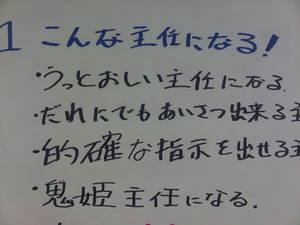 1 こんな主任になる!
・うっとおしい主任になる.
・だれにでもあいさつ出来る主
・的確な指示を出せる主
・鬼姫主任になる.